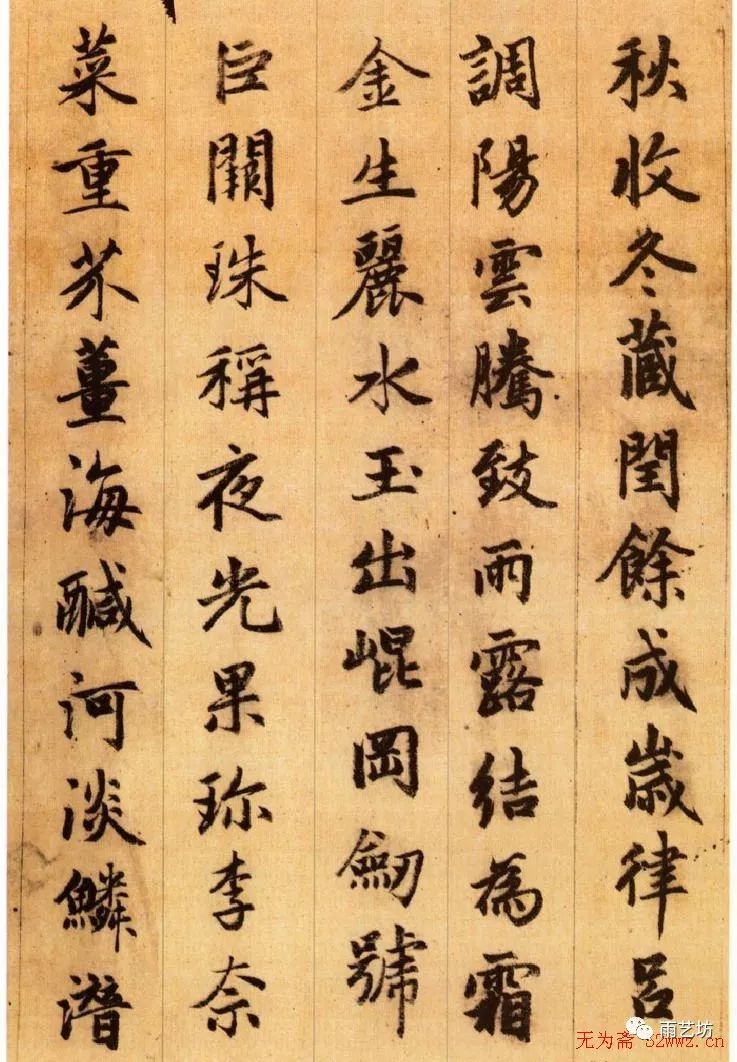 秋收冬藏閏餘成歲律呂
調陽雲騰致雨露結為霜
金生麗水玉出崐岡劒號
巨闕珠稱夜光果珎李柰
菜重芥薑海醎河淡鱗潛
雨艺坊
无为斋 52wwz.cn